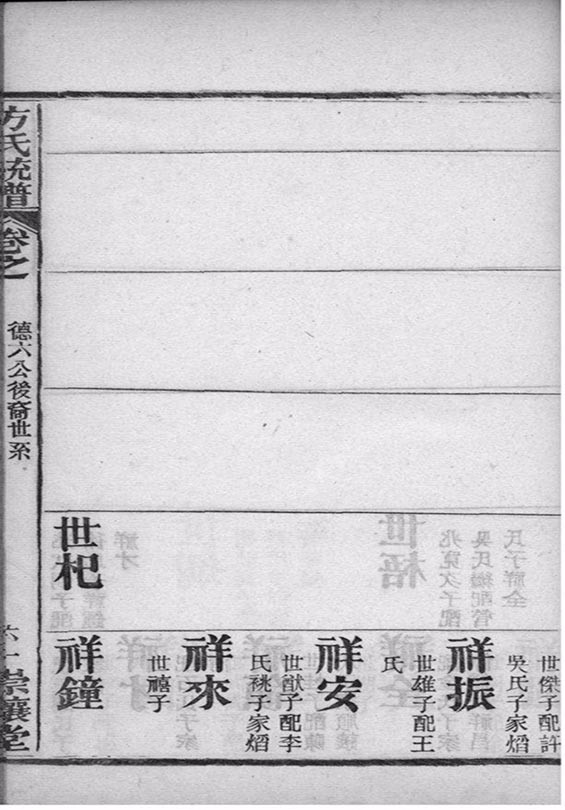 世傑子配許
吳氏子家熠
祥振
世雄子配王
氏
祥安
世猷子配李
氏祧子家熠
祥來
世禧子
世杞
祥鐘
方氏統譜
卷之一
德六公後裔世系
崇讓堂